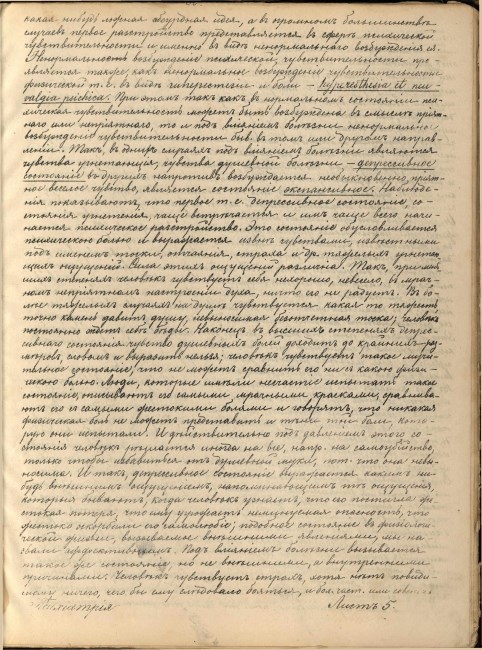 какая нибудь ложная абсурдная идея, а въ громномъ большинствѣ
случаевъ первое разстройство представляется въ сферѣ психической
чувствительности и, именно въ видѣ ненормальнаго возбужденія ея.
Ненормальность возбужденія психической, чувствительности про-
является также, какъ и ненормальное возбужденіе чувствительности
физической т. е. въ видѣ гиперестезіи и боли — hyperesthesia et neu-
ralgia psichica. При этомъ такъ какъ въ нормальномъ состояніи пси-
хическая чувствительность можетъ быть возбуждена въ смыслѣ прият-
наго или неприятнаго, то и подъ вліяніемъ болѣзни ненормально
возбужденіе чувствительности быв. въ томъ или другомъ направ-
леніи. Такъ, въ однихъ случаяхъ подъ вліяніемъ болѣзни являются
чувства угнетающія, чувства душевной болѣзни — депрессивное
состояніе въ другихъ напротивъ возбуждается необыкновенно прият-
ное веселое чувство, является состояніе экспансивное. Наблюде-
нія показываютъ, что первое т. е. депрессивное состояніе, со-
стояніе угнетенія, чаще встрѣчается и имъ чаще всего начи-
нается психическое разстройство. Это состояніе обусловливается
психическою болью и выражается извѣстн. чувствами, извѣстными
подъ именемъ тоски, отчаянія, страха и др. тяжелыхъ угнетаю-
щихъ ощущеній. Сила этихъ ощущеній различна. Такъ, при
человѣкъ чувствуетъ себя нехорошо, невесело, въ мрач-
номъ неприятномъ настроеніи духа, ничто его не радуетъ. Въ бо-
лѣе тяжелыхъ случаяхъ на душѣ чувствуется какая то тяжесть
точно камень давитъ душу, невыносимая безотчетная тоска; человѣкъ
постоянно ждетъ себѣ бѣды. Наконецъ въ высшихъ степеняхъ депрес-
сивнаго состоянія чувство душевныхъ болей доходитъ до крайнихъ раз-
мѣровъ, словомъ и выразить нельзя; человѣкъ чувствуетъ такое мучи-
тельное состояніе, что не можетъ сравнить его ни съ какою физи-
ческою болью. Люди, которые имѣли несчастіе испытать такое
состояніе, описываютъ его самыми мрачными красками, сравнива-
ютъ его съ самыми жестокими болями и говорятъ, что никакая
физическая боль не можетъ представить и тѣни той боли, кото-
рую они испытали. И дѣйствительно подъ давленіемъ этого со-
стоянія человѣкъ рѣшается иногда на все, напр. на самоубійство,
только чтобы избавиться отъ душевной муки, пот. что она невы-
носима. И такъ, депрессивное состояніе выражается какимъ ни-
будь внѣшнимъ ощущеніемъ, напоминающимъ тѣ ощущенія,
которыя бываютъ, когда человѣкъ узнаетъ, что его постигла же-
стокая потеря, что ему угрожаетъ неминуемая опасность, что
жестоко оскорбили его самолюбіе; подобное состояніе въ физіологи-
ческой сферѣ, вызываемое внѣшними явленіями, мы на-
звали аффективнымъ. Подъ вліяніемъ болѣзни вызывается
такое же состояніе, но не внѣшними, а внутренними
причинами. Человѣкъ чувствуетъ страхъ, хотя нѣтъ повиди-
мому ничего, чего бы ему слѣдовало бояться, и
Психіатрія Листъ 5.